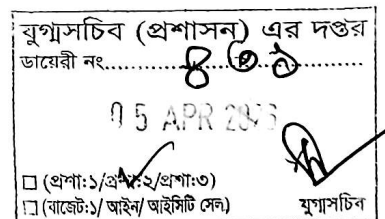 যুগ্মসচিব (প্রশাসন) এর দপ্তর
ডায়েরী নং..........৪৩৯..........
05 APR
□ (প্রশা:১/প্রশা:২/প্রশা:৩)
□ (বাজেট:১/ আইন/ আইসিটি সেল)
যুগ্মসচিব